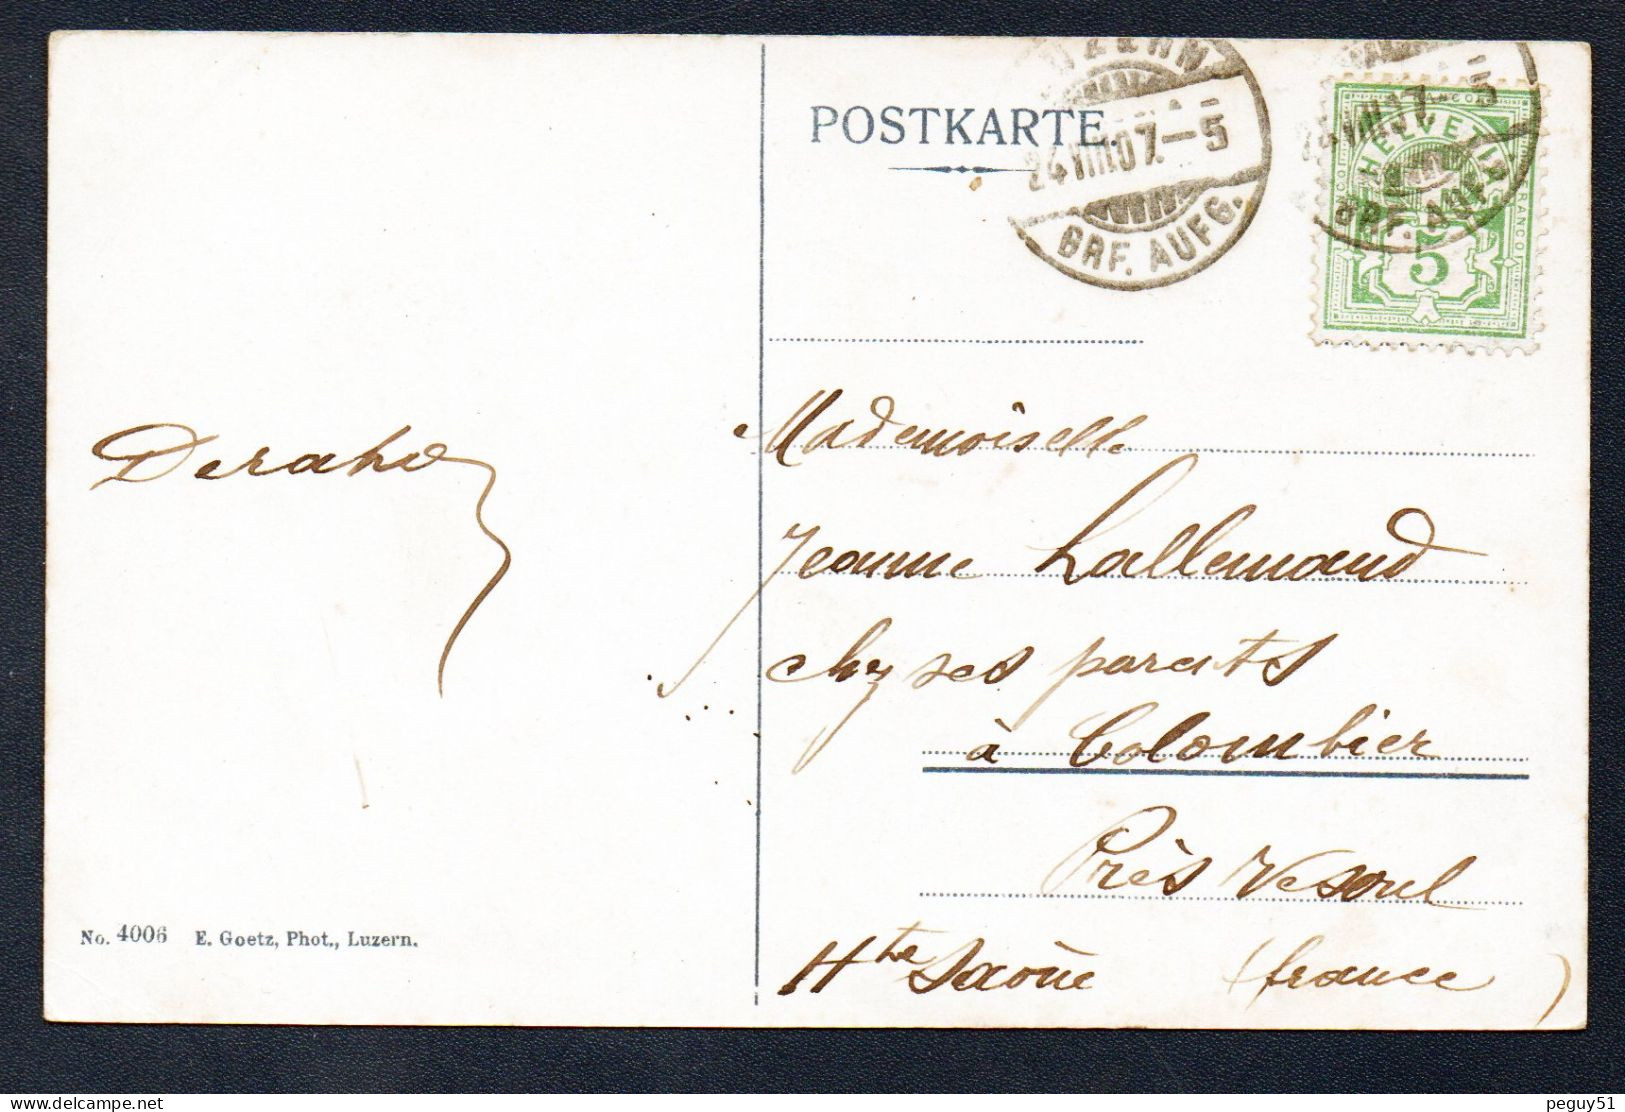 POSTKARTE.
LUZERN
24 VIII 07.–5
BRF. AUFG.
24 VIII 07.–5
BRF. AUFG.
HELVETIA
FRANCO
5
Mademoiselle
Jeanne Lallemand
chz ses parents
à Colombier
Près Vesoul
Hte Saône (france)
No. 4006 E. Goetz, Phot., Luzern.
peguy51